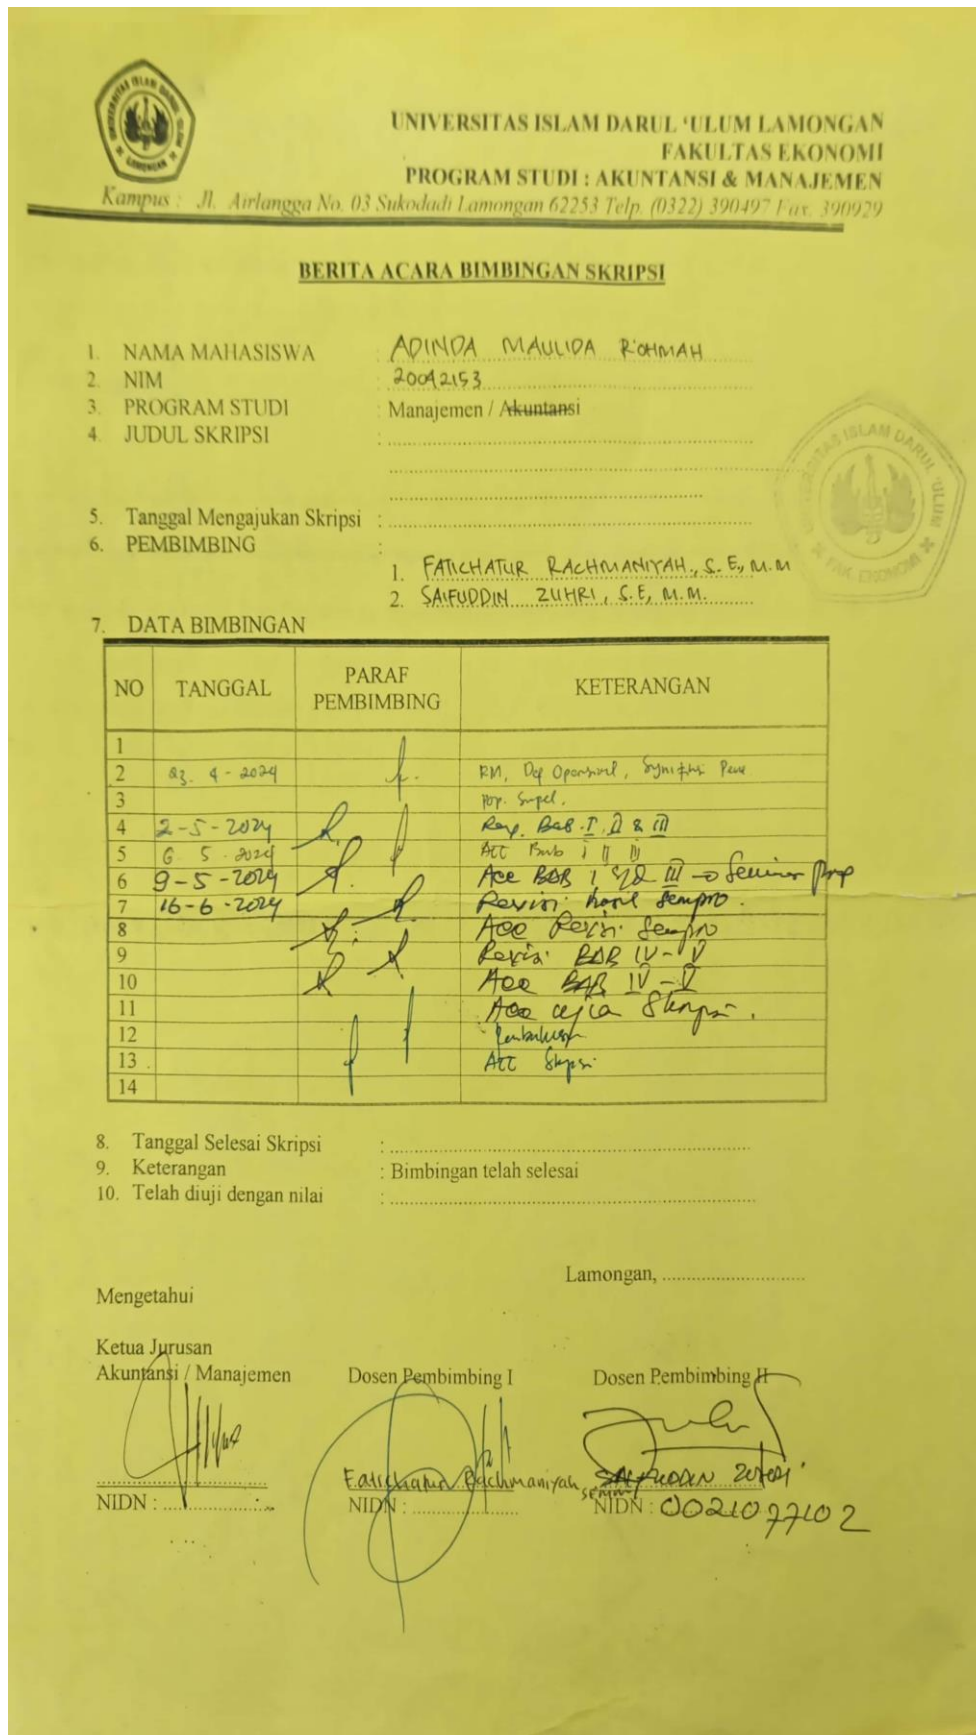 UNIVERSITAS ISLAM DARUL 'ULUM LAMONGAN
FAKULTAS EKONOMI
PROGRAM STUDI : AKUNTANSI & MANAJEMEN
Kampus : Jl. Airlangga No. 03 Sukodadi Lamongan 62253 Telp. (0322) 390497 Fax. 390929
BERITA ACARA BIMBINGAN SKRIPSI
1. NAMA MAHASISWA : ADINDA MAULIDA ROHMAH
2. NIM : 20042153
3. PROGRAM STUDI : Manajemen / Akuntansi
4. JUDUL SKRIPSI :
UNIVERSITAS ISLAM DARUL 'ULUM
FAK. EKONOMI
5. Tanggal Mengajukan Skripsi :
6. PEMBIMBING :
1. FATICHATUR RACHMANIYAH., S.E., M.M
2. SAIFUDDIN ZUHRI, S.E, M.M.
7. DATA BIMBINGAN
NO TANGGAL PARAF PEMBIMBING KETERANGAN
1
2 23. 4 - 2024 RM, Def Operasional,
3
4 2-5-2024 Rev. BAB I, II & III
5 6 5 - 2024 ACC Bab I II III
6 9-5-2024 Acc BAB I S/d III → Seminar Prop
7 16-6-2024 Revisi hasil Sempro.
8 Acc Revisi Sempro
9 Revisi BAB IV-V
10 Acc BAB IV-V
11 Acc ujian Skripsi.
12
13 ACC Skripsi
14
8. Tanggal Selesai Skripsi :
9. Keterangan : Bimbingan telah selesai
10. Telah diuji dengan nilai :
Lamongan,
Mengetahui
Ketua Jurusan
Akuntansi / Manajemen Dosen Pembimbing I Dosen Pembimbing II
Fatichatur Rachmaniyah, SE,MM SAIFUDDIN ZUHRI
NIDN : NIDN : NIDN : 0021077102